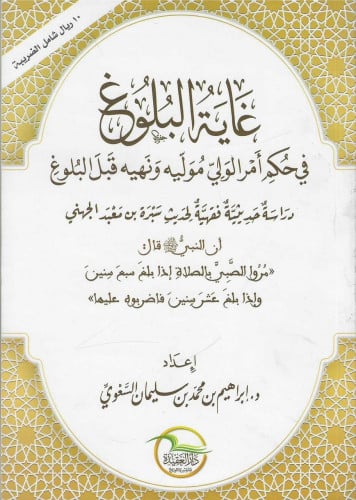 ١٠ ريال شامل الضريبة
غَايَةُ البُلُوغِ
فِي حُكْمِ أَمْرِ الوَلِيِّ مُوَلِّيهِ وَنَهْيِهِ قَبْلَ البُلُوغِ
دِرَاسَةٌ حَدِيثِيَّةٌ فِقْهِيَّةٌ لِحَدِيثِ سَبْرَةَ بْنِ مَعْبَدٍ الجُهَنِي
أن النبي ﷺ قال:
«مُرُوا الصَّبِيَّ بالصلاةِ إذا بلغ سبع سنين
وإذا بلغ عشر سنين فاضربوه عليها»
إِعْدَاد
د. إبراهيم بن محمد بن سليمان السَّعْوِي
دار العقيدة